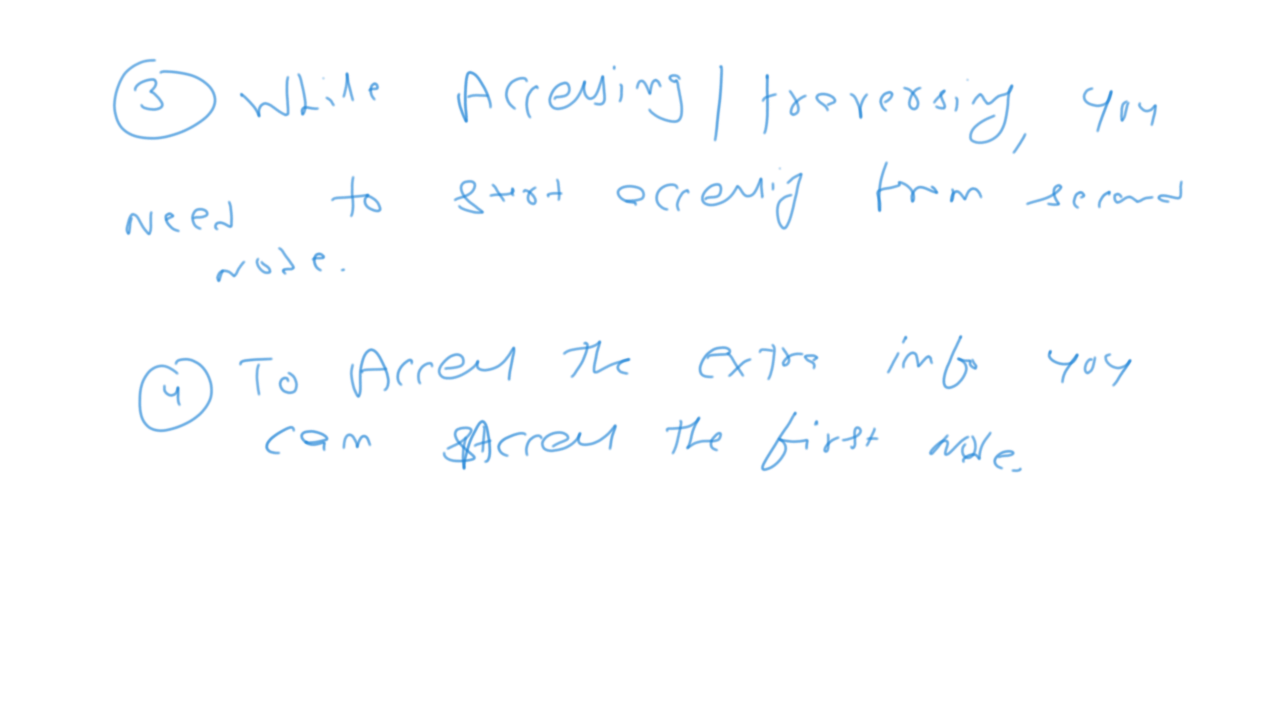 3 While Accessing / traversing, you
need to start accessing from second
node.
4 To Access the extra info you
can Access the first node.